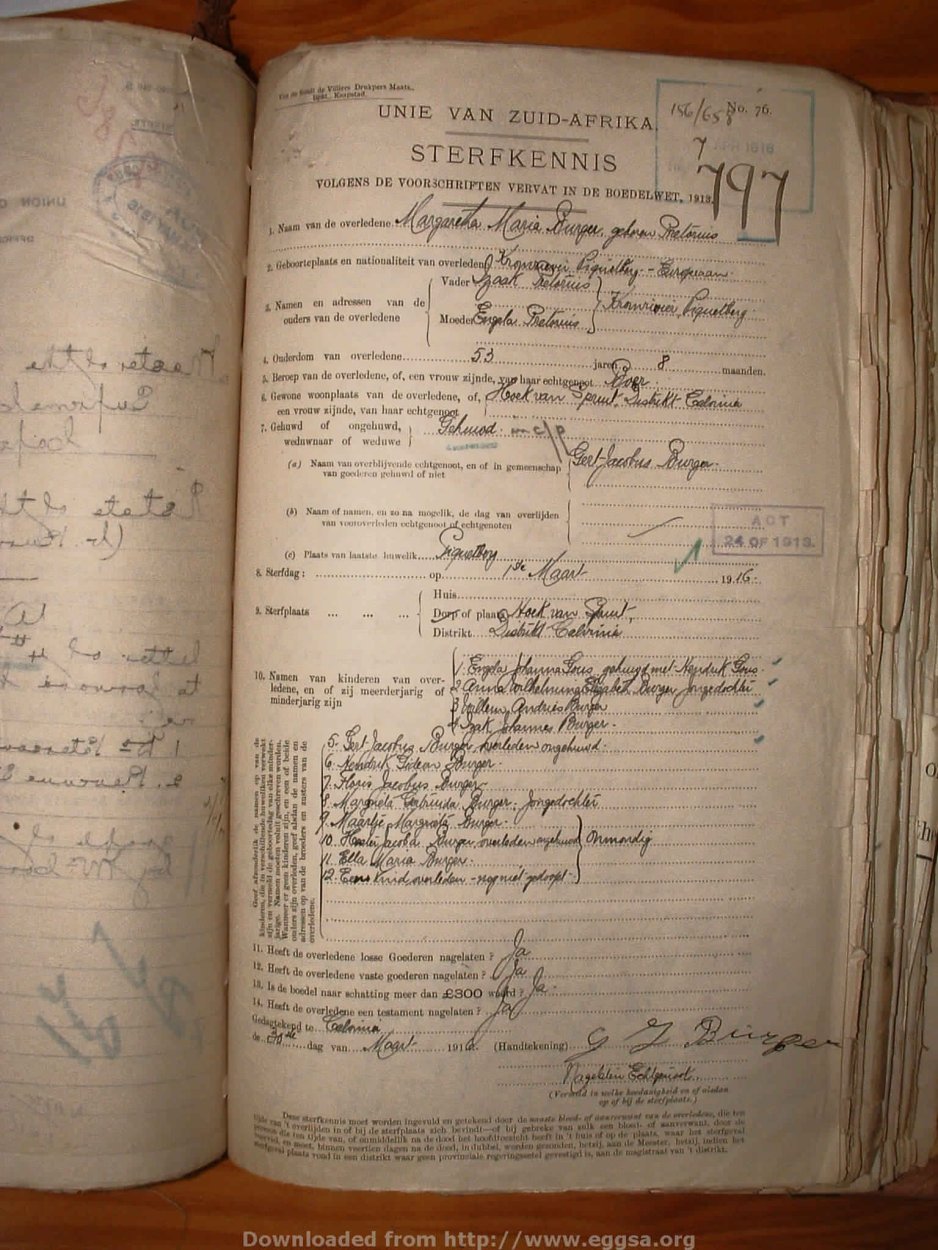 UNIE VAN ZUID-AFRIKA.
156/658 No. 76.
STERFKENNIS
797
VOLGENS DE VOORSCHRIFTEN VERVAT IN DE BOEDELWET, 1913.
1. Naam van de overledene Margaretha Maria Burger, geboren Pretorius
2. Geboorteplaats en nationaliteit van overledene Kromrivier, Piquetberg - Europeaan
3. Namen en adressen van de ouders van de overledene
Vader Izaak Pretorius
Kromrivier, Piquetberg
Moeder Engela Pretorius
4. Ouderdom van overledene 53 jaren 8 maanden.
5. Beroep van de overledene, of, een vrouw zijnde, van haar echtgenoot Boer
6. Gewone woonplaats van de overledene, of, een vrouw zijnde, van haar echtgenoot Hoek van Spruit Distrikt Calvinia
7. Gehuwd of ongehuwd, weduwnaar of weduwe Gehuwd in c/p
(a) Naam van overblijvende echtgenoot, en of in gemeenschap van goederen gehuwd of niet Gert Jacobus Burger
(b) Naam of namen, en zo na mogelik, de dag van overlijden van vooroverleden echtgenoot of echtgenoten
ACT
24 OF 1913.
(c) Plaats van laatste huwelik Piquetberg
8. Sterfdag: op 1ste Maart 1916.
9. Sterfplaats
Huis
Dorp of plaats Hoek van Spruit
Distrikt Distrikt Calvinia
10. Namen van kinderen van overledene, en of zij meerderjarig of minderjarig zijn
1. Engela Johanna Gous, gehuwd met Hendrik Gous.
2 Anna Wilhelmina Elizabeth Burger Jongedochter
3 Willem Andries Burger
4 Izak Johannes Burger.
5. Gert Jacobus Burger overleden ongehuwd.
6. Hendrik Gideon Burger.
7. Floris Jacobus Burger.
8. Margrieta Gertruida Burger. Jongedochter
9. Maartje Margrieta Burger.
10. Hester Jacoba Burger, overleden ongehuwd Onmondig
11. Ella Maria Burger.
12. Eens kind overleden - nog niet gedoopt
Geef afzonderlik de namen op van de
kinderen, die in verschillende huweliken verwekt
zijn en vermeld de geboortedag van elke minderjarige. Namen moeten voluit geschreven worden.
Wanneer er geen kinderen zijn, en een of beide
ouders zijn overleden, geef alsdan de namen en
adressen op van de broeders en zusters van de
overledene.
11. Heeft de overledene losse Goederen nagelaten? Ja
12. Heeft de overledene vaste goederen nagelaten? Ja
13. Is de boedel naar schatting meer dan £300 waard? Ja.
14. Heeft de overledene een testament nagelaten? Ja
Gedagtekend te Calvinia
de 30ste dag van Maart 1916. (Handtekening) G J Burger
Nagelaten Echtgenoot.
(Vermeld in welke hoedanigheid en of aldan
op of bij de sterfplaats.)
Deze sterfkennis moet worden ingevuld en getekend door de naaste bloed- of aanverwant van de overledene, die ten
tijde van 't overlijden in of bij de sterfplaats zich bevindt—of bij gebreke van zulk een bloed- of aanverwant, door de
persoon die ten tijde van, of onmiddellik na de dood het hoofdtoezicht heeft in 't huis of op de plaats, waar het sterfgeval
voorviel, en moet, binnen veertien dagen na de dood, in dubbel, worden gezonden, hetzij, aan de Meester, hetzij, indien het
sterfgeval plaats vond in een distrikt waar geen provinciale regeringszetel gevestigd is, aan de magistraat van 't distrikt.
Downloaded from http://www.eggsa.org